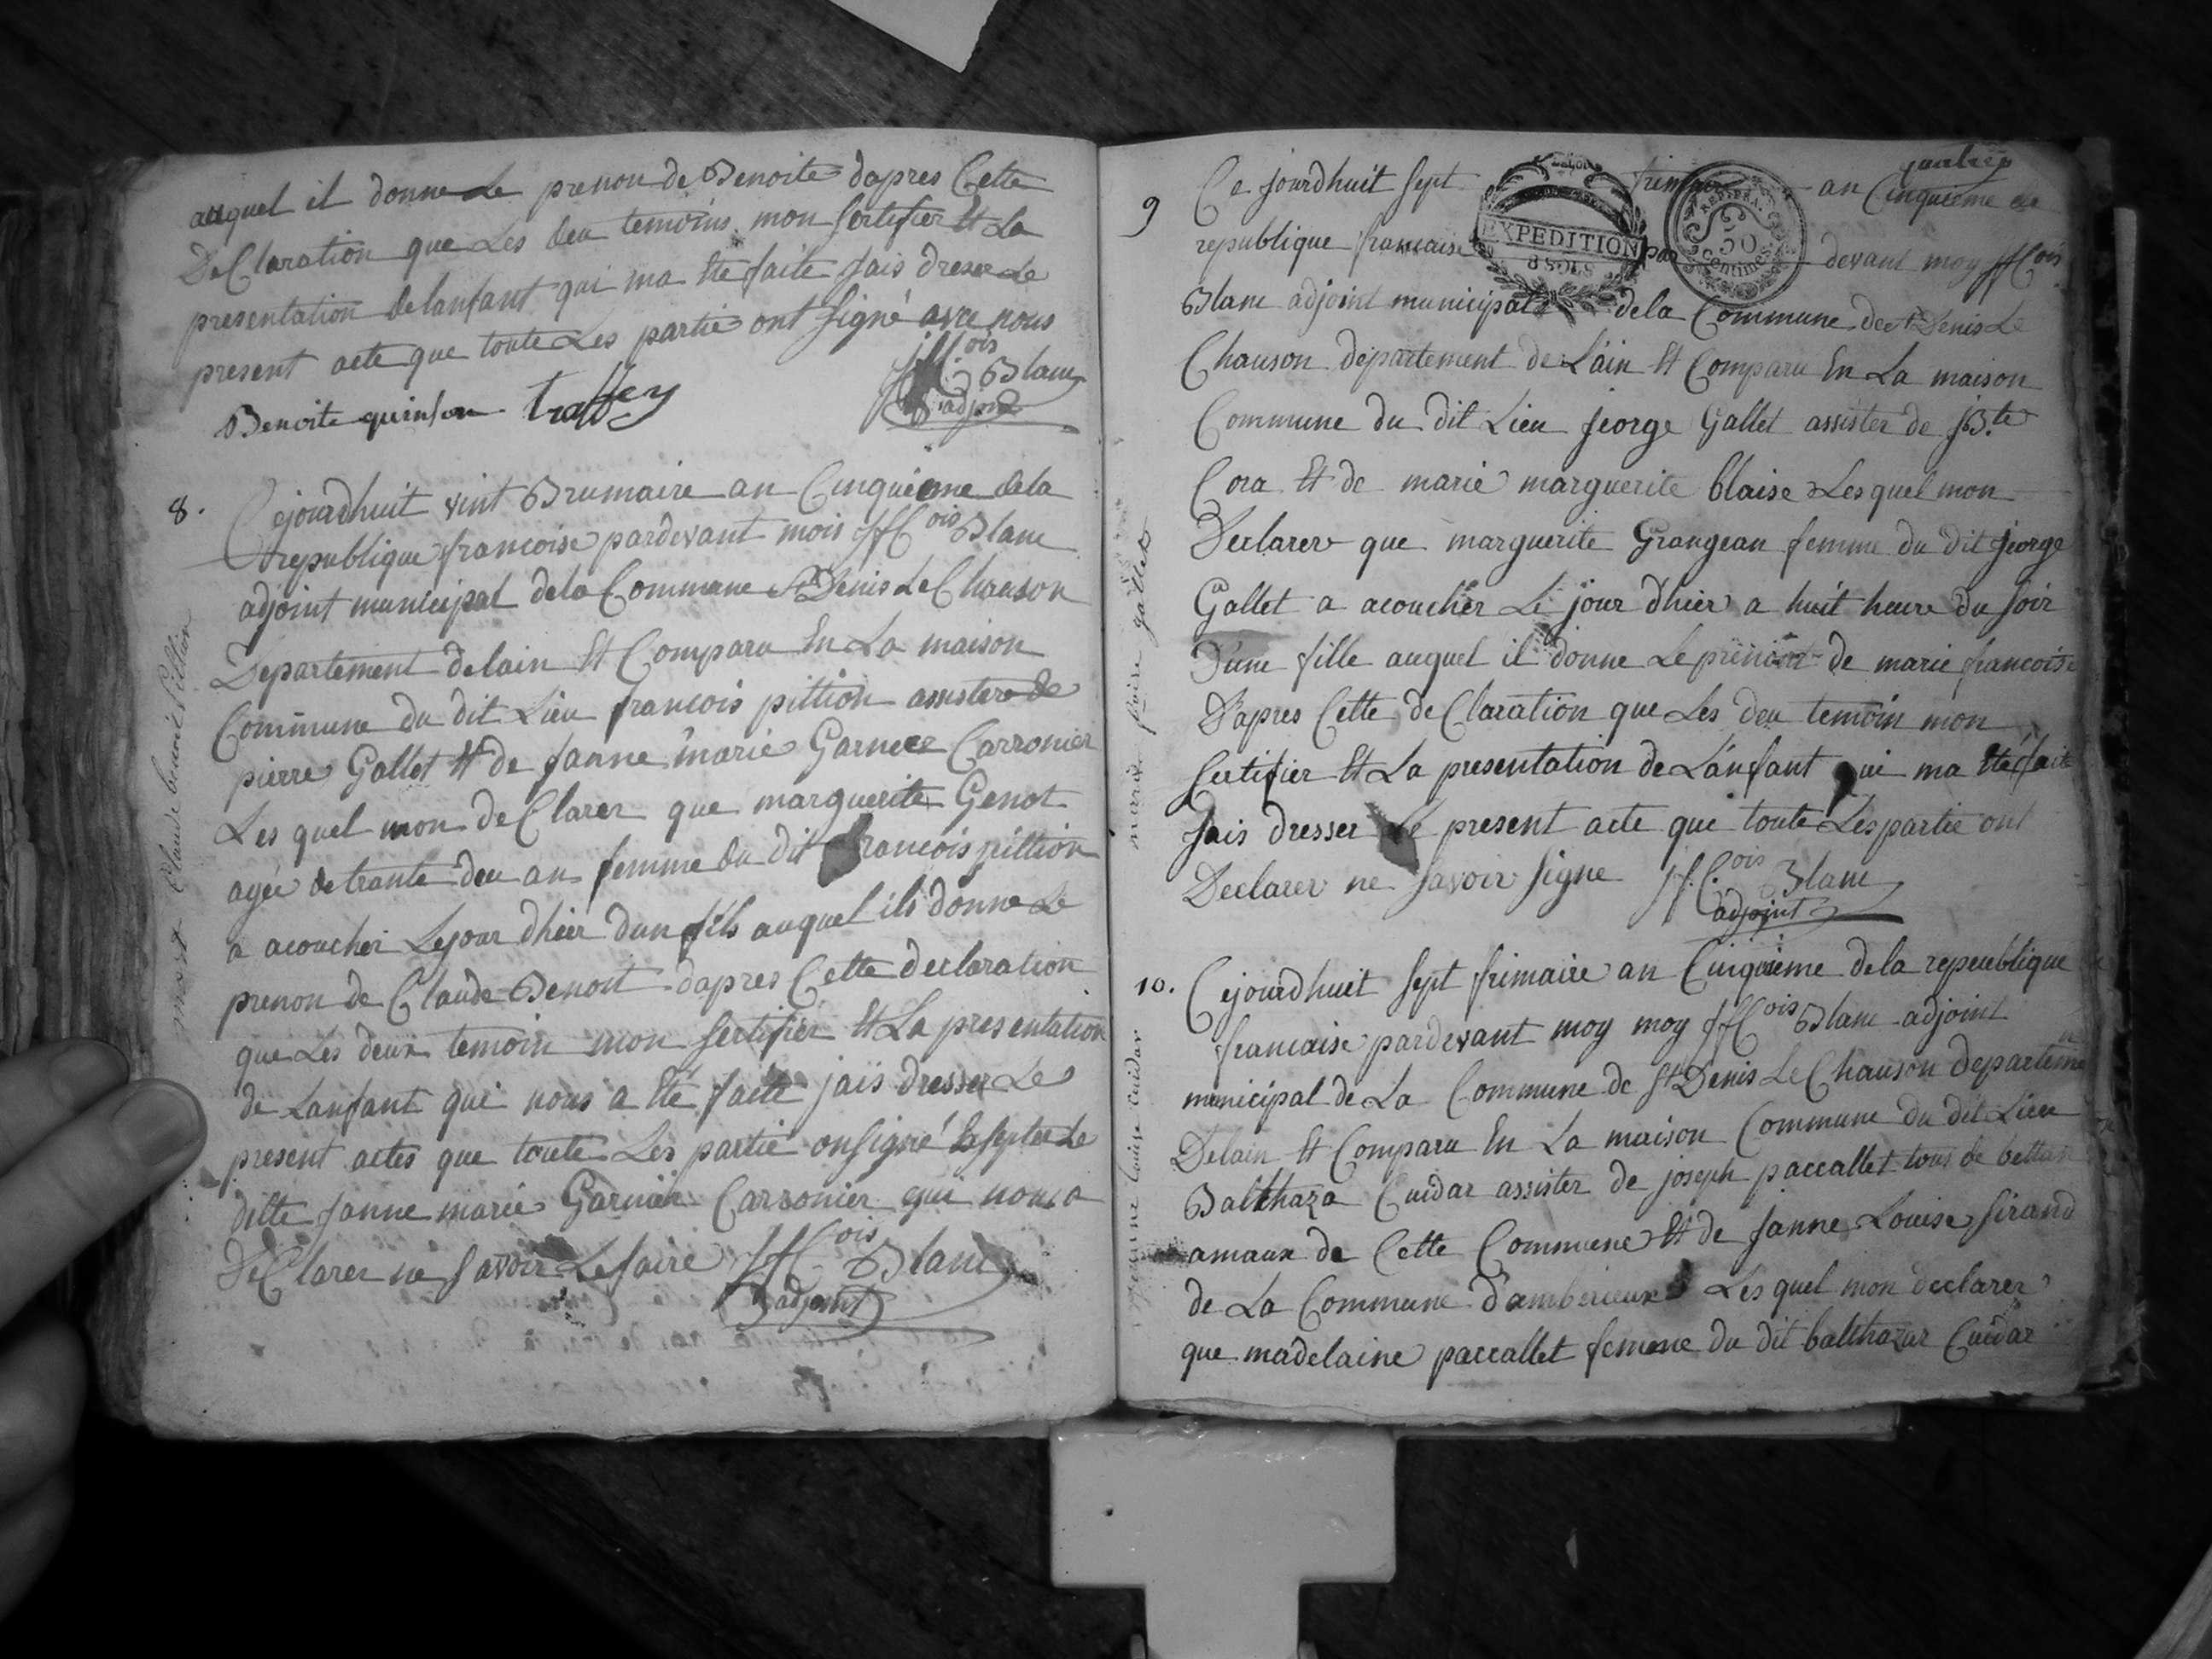 auquel il donne Le prenon de Benoite dapres Cette
DeClaration que Les deu temoins mon sertifier Et La
presentation delanfant qui ma Ete faite jais dreser Le
present acte que toute Les partie ont signé avec nous
Benoite quinson traffey
jffC.ois Blanc
adjoint
8.
Cejourdhuit vint Brumaire an Cinquieme dela
republique francoise pardevant mois jffCois Blanc
adjoint municipal dela Commune St Denis Le Chauson
Departement delain Et Comparu En La maison
Commune du dit Lieu francois pittion assister de
pierre Gallet Et de janne marie Garnier Carronier
Les quel mon deClarer que marguerite Genot
agée de trante deu an femme du dit francois pittion
a acoucher Le jour dhier dun fils auquel ils donne Le
prenon de Claude Benoit dapres Cette declaration
que Les deux temoin mon sertifier Et La presentation
de Lanfant qui nous a Eté faite jais dresser Le
present actes que toute Les partie on signé Exsepter Le
ditte janne marie Garnier Carronier qui nous a
DeClarer ne savoir Le faire jffCois Blanc
adjoint
mort Claude benoit Pittion
9
Ce jourdhuit sept frimaire an Cinquieme de
republique francaise par devant moy jffCois
Blanc adjoint municipal dela Commune de St Denis Le
Chauson departement de L'ain Et Comparu En La maison
Commune du dit Lieu jeorge Gallet assister de jB.te
Cora Et de marie marguerite blaise Les quel mon
Declarer que marguerite Grangean femme du dit jeorge
Gallet a acoucher Le jour dhier a huit heure du soir
D'une fille auquel il donne Le prenom de marie francoise
D'apres Cette deClaration que Les deu temoin mon
sertifier Et La presentation de L'anfant qui ma Eté faite
jais dresser Le present acte que toute Les partie ont
Declarer ne savoir signe jf.C.ois Blanc
adjoint
marie gallet
EXPEDITION
8 SOLS
REP. FRA.
50
centimes
10.
Cejourdhuit sept frimaire an Cinquieme dela republique
francaise pardevant moy moy jffCois Blanc adjoint
municipal de La Commune de St Denis Le Chauson departeme
Delain Et Comparu En La maison Commune du dit Lieu
Balthaza Cuidar assister de joseph paccallet tous de bettan
amaux de Cette Commune Et de janne Louise sirand
de La Commune d'amberieux Les quel mon declarer
que madelaine paccallet femme du dit balthazar Cuidar
jeanne Louise Cuidar